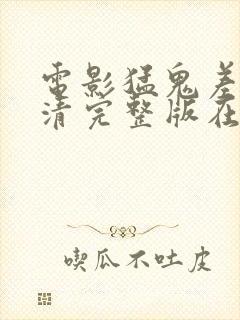 電影猛鬼差
清完整版在
喫瓜不吐皮